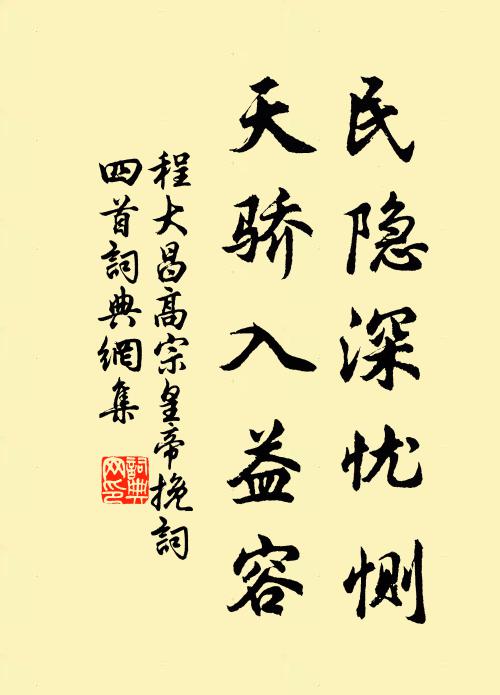 民隐深忧恻
天骄入益容
程大昌高宗皇帝挽詞
四首詞典網集
詞典
网印